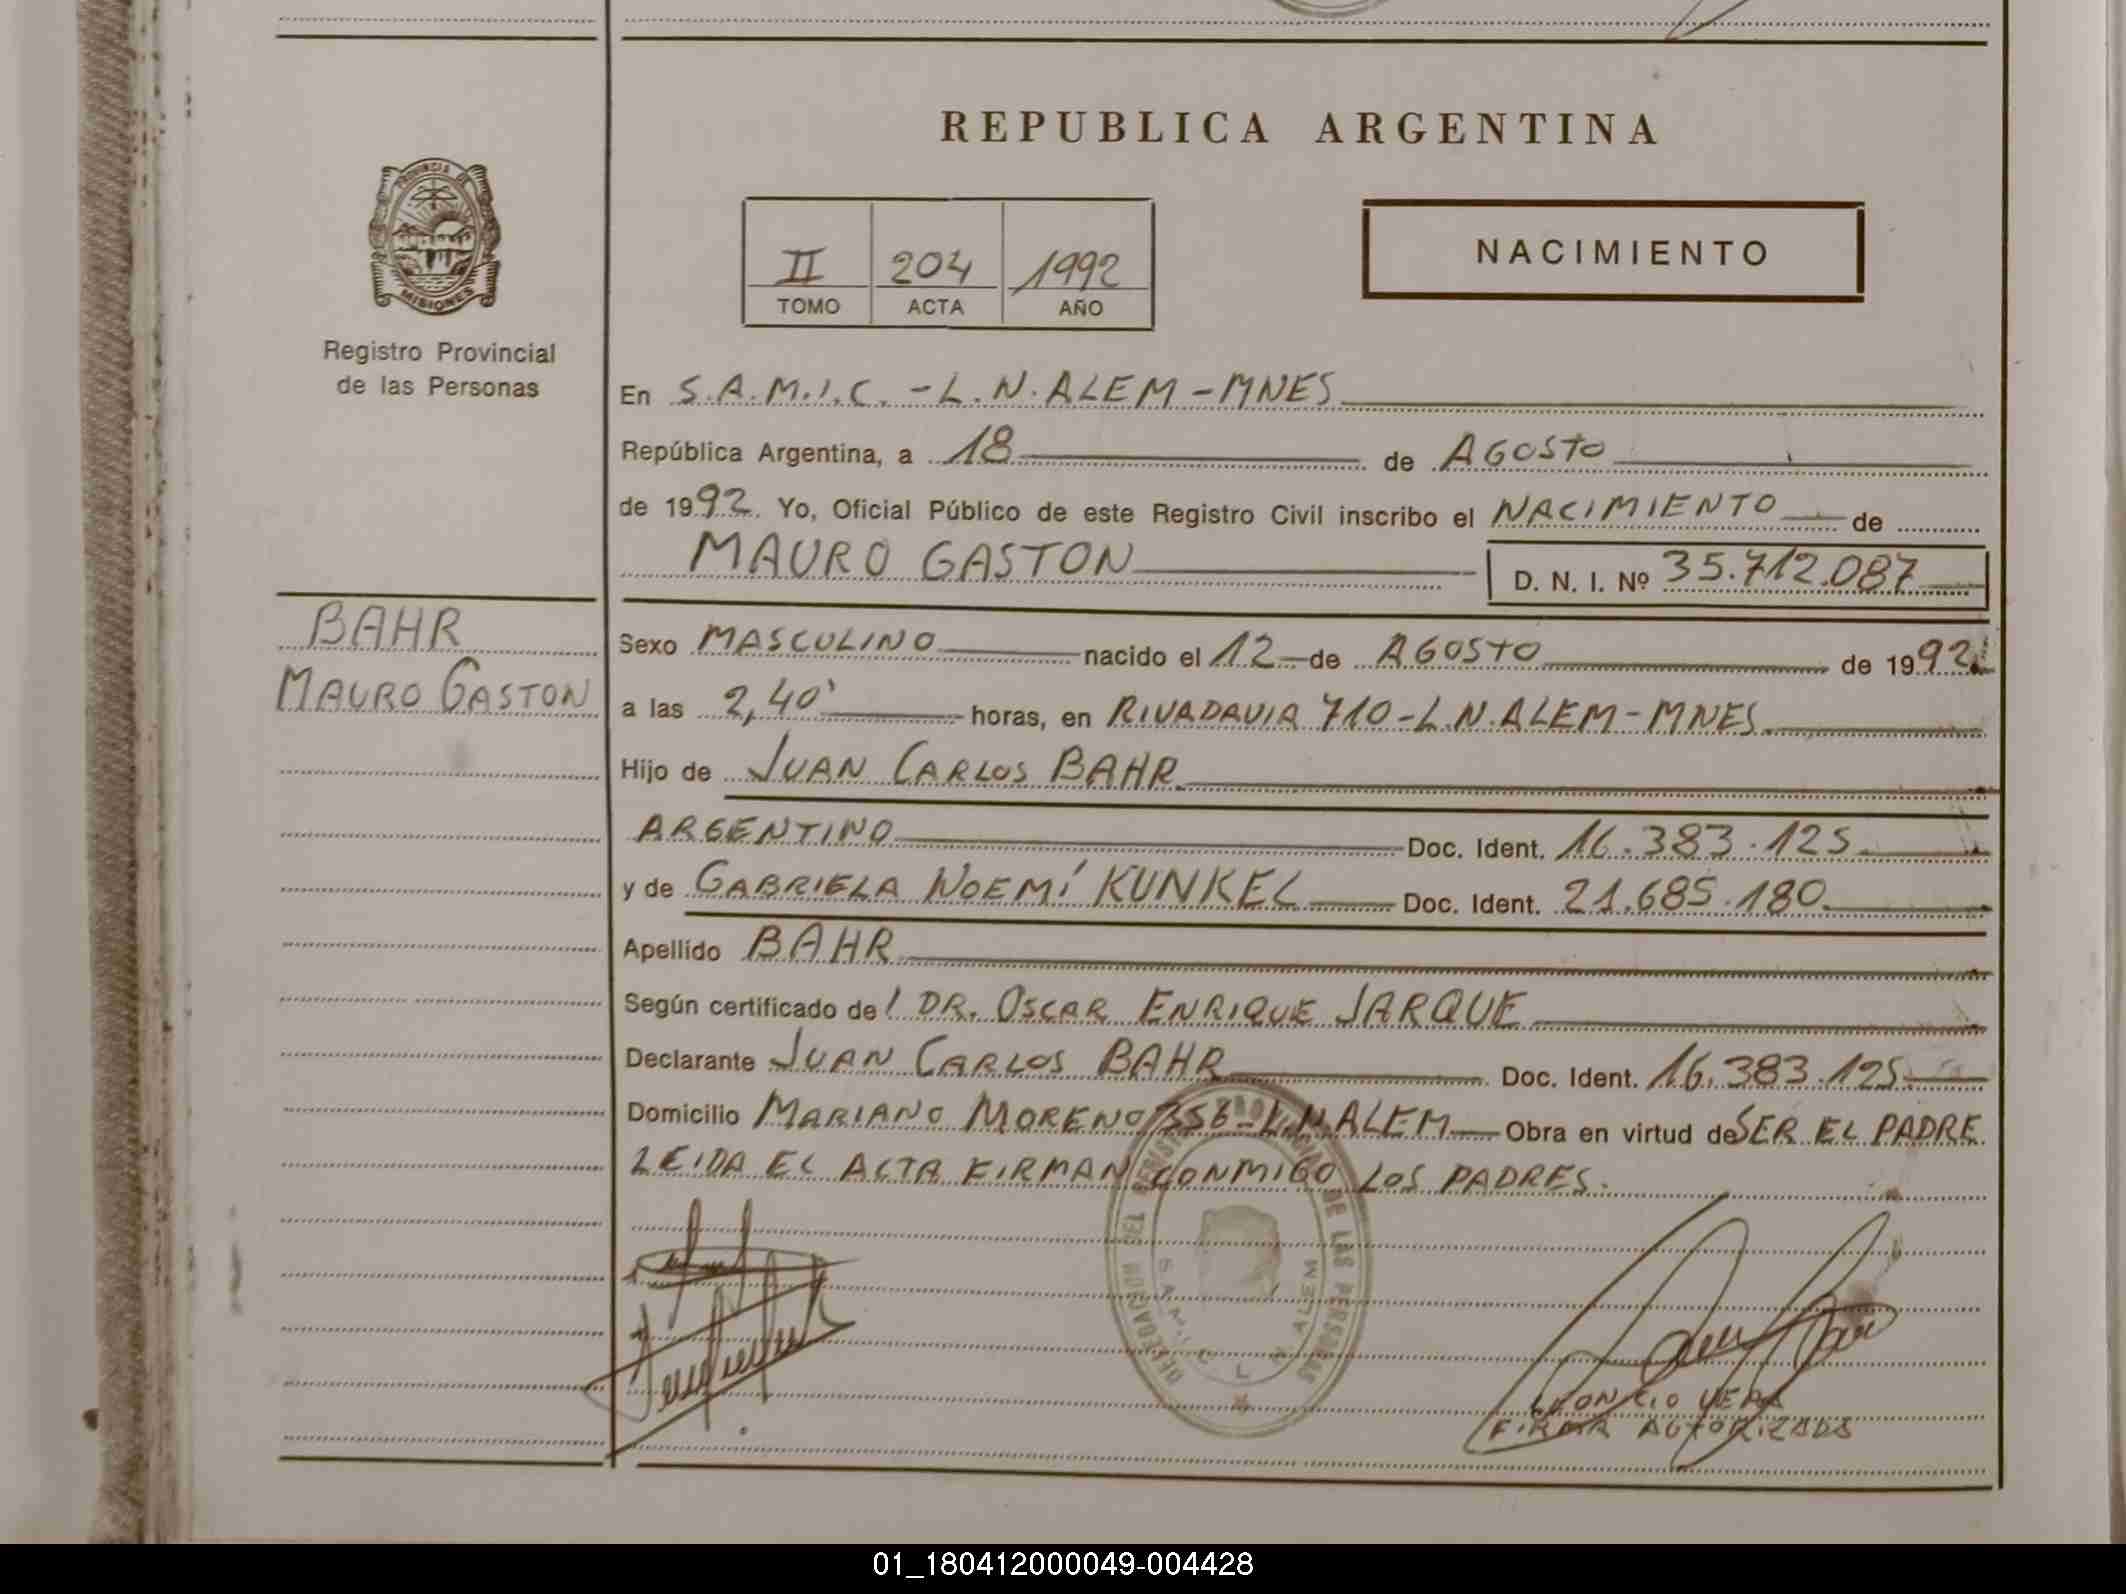 REPUBLICA ARGENTINA
PROVINCIA DE
MISIONES
II 204 1992
TOMO ACTA AÑO
NACIMIENTO
Registro Provincial
de las Personas
En S.A.M.I.C. - L.N. ALEM - MNES
República Argentina, a 18 de AGOSTO
de 1992. Yo, Oficial Público de este Registro Civil inscribo el NACIMIENTO de
MAURO GASTON D. N. I. Nº 35.712.087
BAHR
MAURO GASTON
Sexo MASCULINO nacido el 12 de AGOSTO de 1992.
a las 2,40' horas, en RIVADAVIA 710 - L.N. ALEM - MNES
Hijo de JUAN CARLOS BAHR
ARGENTINO Doc. Ident. 16.383.125
y de GABRIELA NOEMÍ KUNKEL Doc. Ident. 21.685.180
Apellido BAHR
Según certificado del DR. OSCAR ENRIQUE JARQUE
Declarante JUAN CARLOS BAHR Doc. Ident. 16.383.125
Domicilio MARIANO MORENO 356 - L.N. ALEM Obra en virtud de SER EL PADRE
LEIDA EL ACTA FIRMAN CONMIGO LOS PADRES.
DELEGACION DEL REGISTRO PROVINCIAL DE LAS PERSONAS
S.A.M.I.C. L N ALEM
LEONCIO VERA
FIRMA AUTORIZADA
01_180412000049-004428